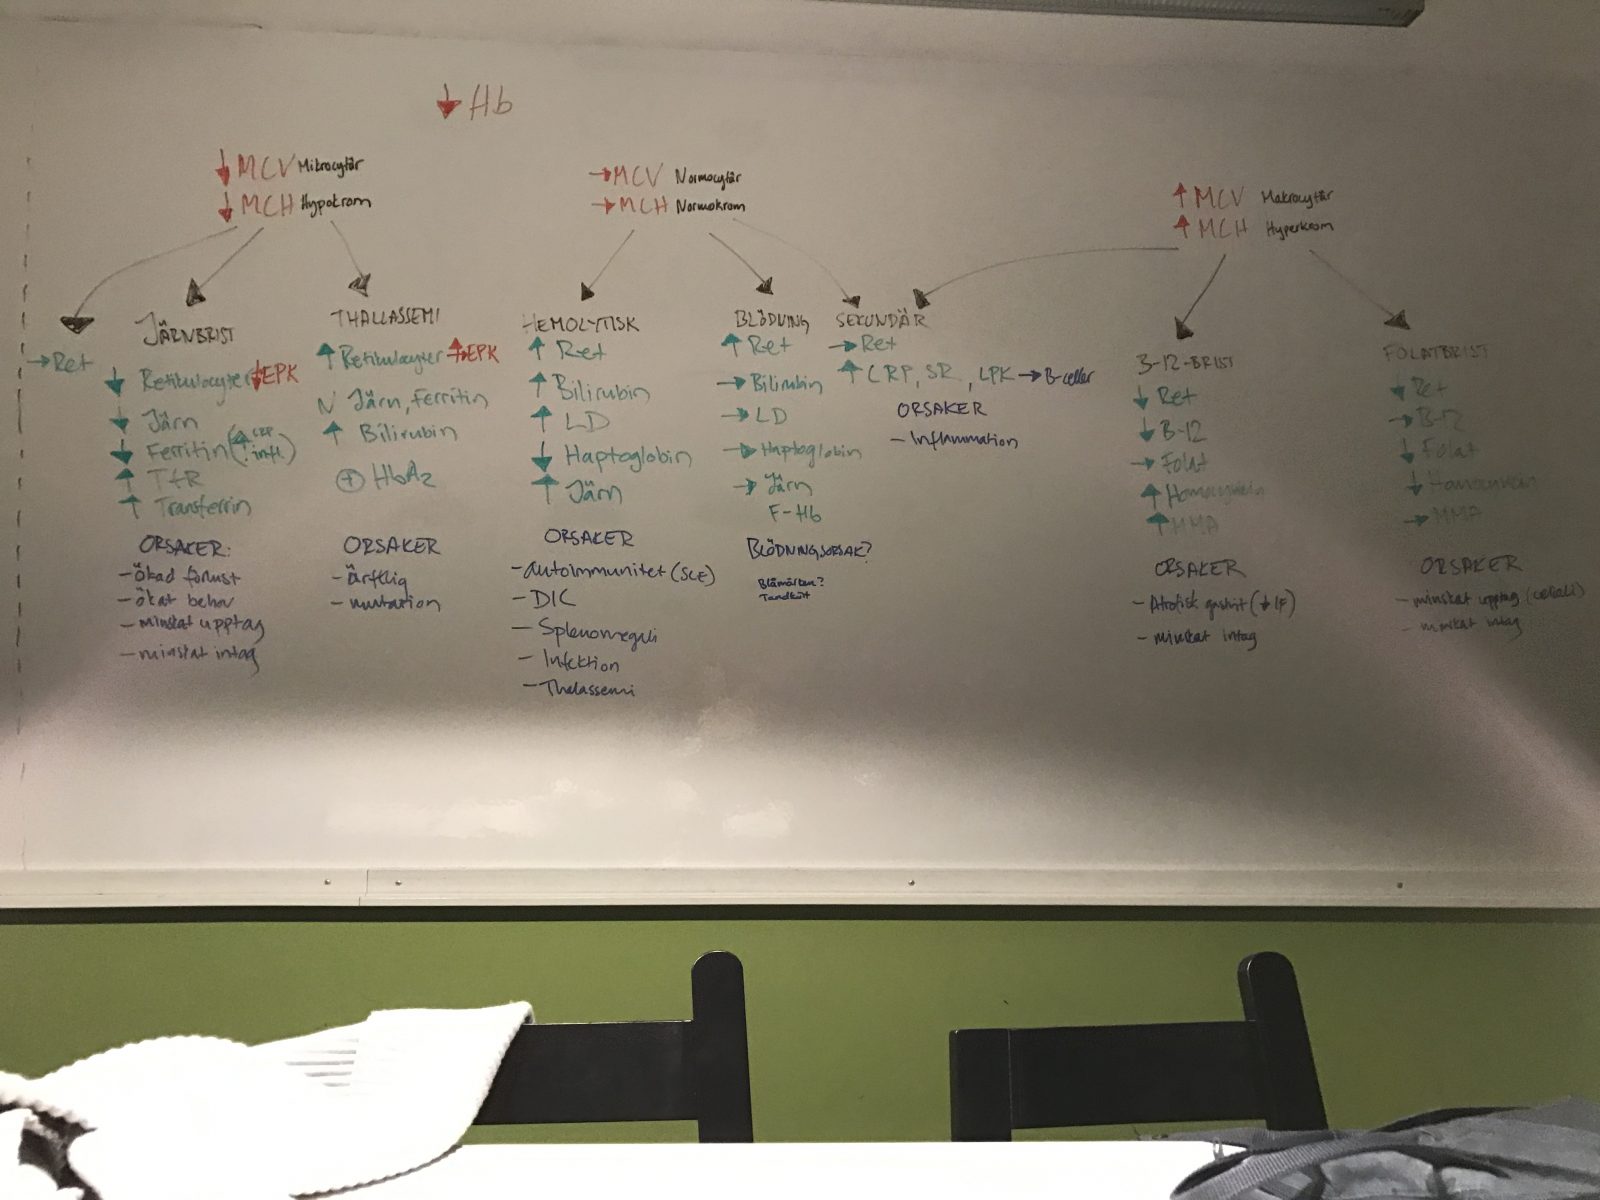 ↓ Hb
↓ MCV Mikrocytär
↓ MCH Hypokrom
→ Ret
JÄRNBRIST
↓ Retikulocyter ↓ EPK
↓ Järn
↓ Ferritin (↑ CRP infl.)
↑ TfR
↑ Transferrin
ORSAKER:
- ökad förlust
- ökat behov
- minskat upptag
- minskat intag
THALLASSEMI
↑ Retikulocyter EPK
N Järn, Ferritin
↑ Bilirubin
⊕ HbA2
ORSAKER
- ärftlig
- mutation
→ MCV Normocytär
→ MCH Normokrom
HEMOLYTISK
↑ Ret
↑ Bilirubin
↑ LD
↓ Haptoglobin
↑ Järn
ORSAKER
- autoimmunitet (SLE)
- DIC
- Splenomegali
- Infektion
- Thalassemi
BLÖDNING
↑ Ret
→ Bilirubin
→ LD
→ Haptoglobin
→ Järn
F-Hb
BLÖDNINGSORSAK?
Blåmärken?
Tandkött
SEKUNDÄR
→ Ret
↑ CRP, SR, LPK → B-celler
ORSAKER
- Inflammation
↑ MCV Makrocytär
↑ MCH Hyperkrom
B-12-BRIST
↓ Ret
↓ B-12
→ Folat
↑ Homocystein
↑ MMA
ORSAKER
- Atrofisk gastrit (↓ IF)
- minskat intag
FOLATBRIST
↓ Ret
→ B-12
↓ Folat
↓ Homocystein
→ MMA
ORSAKER
- minskat upptag (celiaki)
- minskat intag